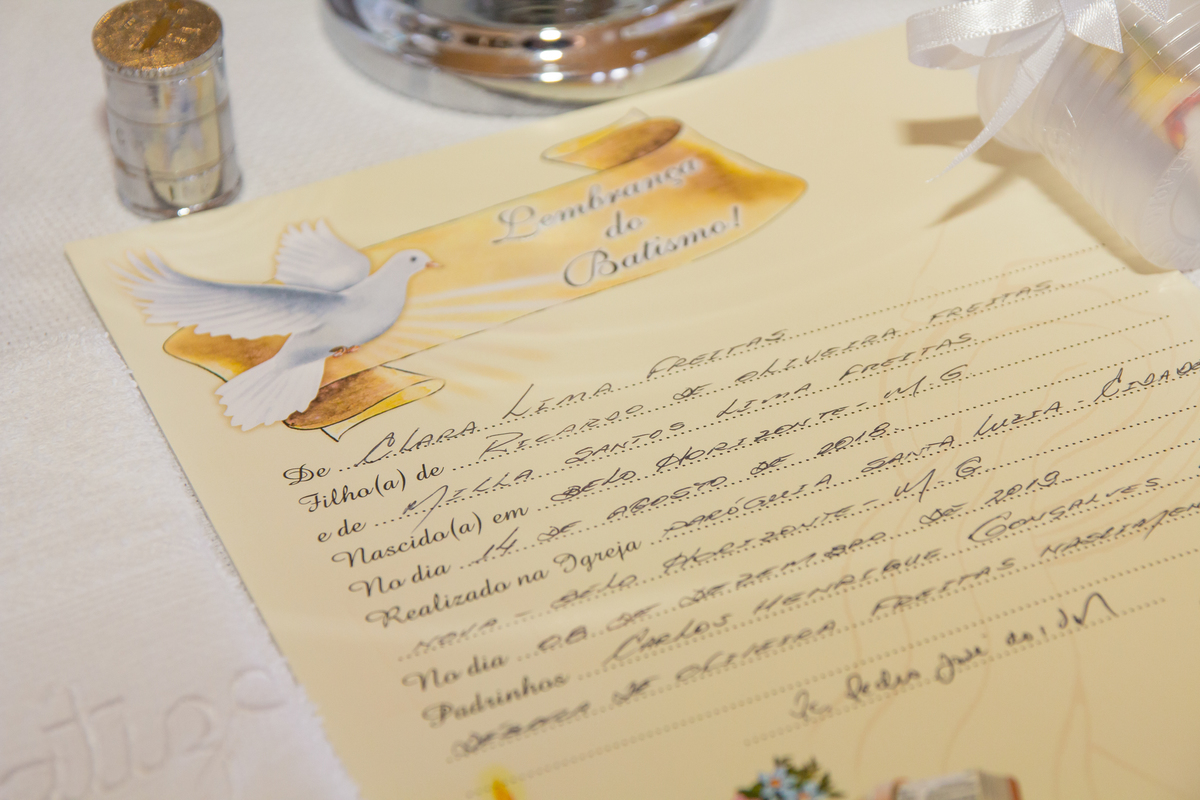 Lembrança
do
Batismo!
De CLARA LIMA FREITAS
Filho(a) de RICARDO DE OLIVEIRA FREITAS
e de MILLA SANTOS LIMA FREITAS
Nascido(a) em BELO HORIZONTE - M.G
No dia 14 DE AGOSTO DE 2018
Realizado na Igreja PARÓQUIA SANTA LUZIA - CIDADE
NOVA - BELO HORIZONTE - M.G
No dia 08 DE DEZEMBRO DE 2019
Padrinhos CARLOS HENRIQUE GONÇALVES
DE OLIVEIRA FREITAS
Pe. Pedro José